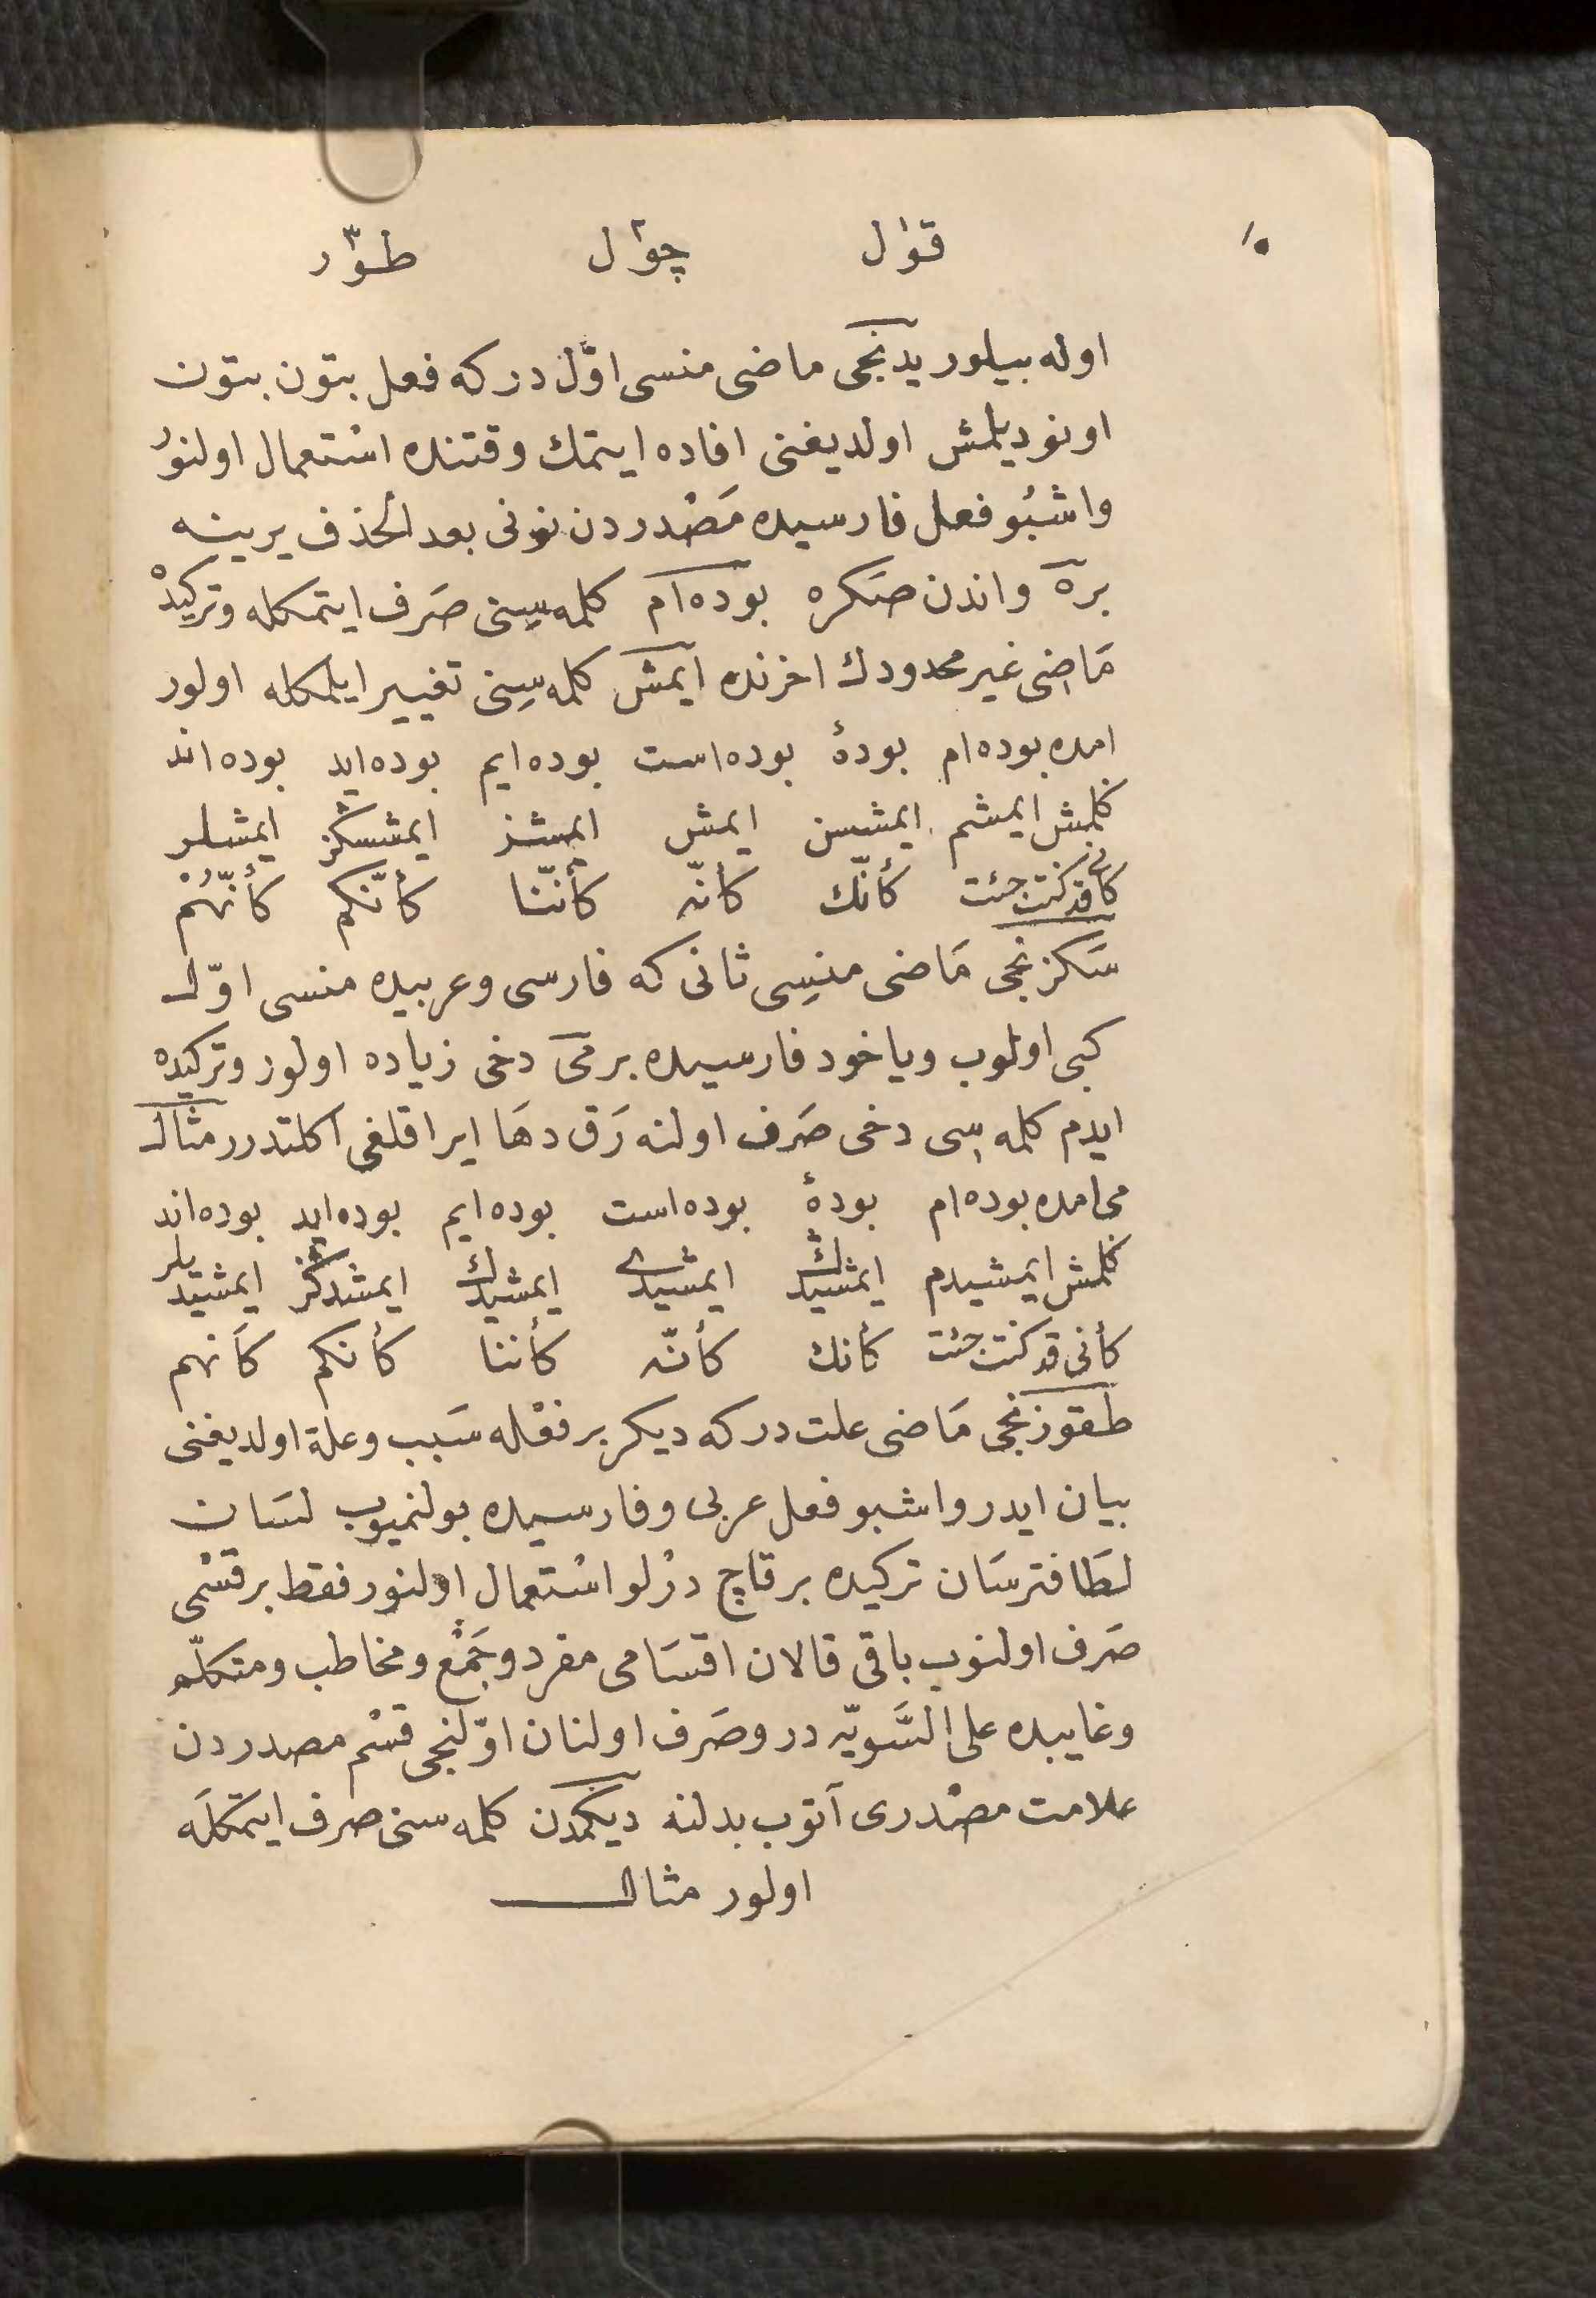 ١٠
قول چول طور
اوله بیلور یدنجی ماضی منسی اوّل در که فعل بتون بتون
اونودیلمش اولدیغنی افاده ایتمك وقتنده اسْتعمال اولنوُ
واشبُو فعل فارسیده مَصْدردن نونی بعد الحذف یرینه
بره واندن صکره بوده ام کلمه سِینی صَرف ایتمکله وترکیدْ
مَاضِی غیر محدودك اخرنده ایمش کلمه سِینی تغییر ایلمکله اولور
امده بوده ام بودهٔ بوده است بوده ایم بوده اید بوده اند
کلمش ایمشم ایمشسن ایمش ایمشز ایمشسکز ایمشلر
کأنی قد کنت جئت کأنّك کأنّه کأنّنا کأنّکم کأنّهُمْ
سَکزنجی مَاضی منسِی ثانی که فارسی وعربیده منسی اوّل
کبی اولوب ویاخود فارسیده برمی دخی زیاده اولور وترکیده
ایدم کلمه سِی دخی صَرف اولنه رَق دهَا ایراقلغی اکلتدرر مثال
می امده بوده ام بودهٔ بوده است بوده ایم بوده اید بوده اند
کلمش ایمشیدم ایمشیدڭ ایمشیدی ایمشیدك ایمشدکز ایمشیدیلر
کأنی قد کنت جئت کأنك کأنّه کأننا کأنکم کأنهم
طقوزنجی مَاضی علت در که دیکر بر فعْله سَبب وعلة اولدیغنی
بیان ایدر واشبو فعل عربی وفارسیده بولنمیوب لسَان
لطَافترسَان ترکیده بر قاچ درْلو اسْتعمال اولنور فقط بر قسْمی
صَرف اولنوب باقی قالان اقسَامی مفرد وجَمْع ومخاطب ومتکلّم
وغایبده علی السَّویّه در وصَرف اولنان اوّلنجی قسْم مصدردن
علامت مصْدری آتوب بدلنه دیکمدن کلمه سنی صرف ایتمکلَه
اولور مثال